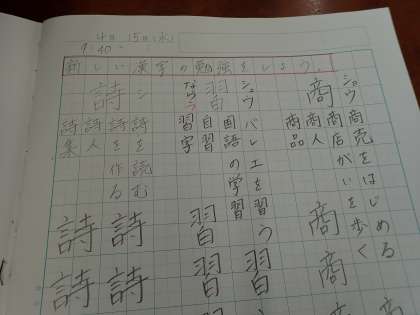 4月 15日(水)
9:40~ :
新しい漢字の勉強をしよう。
商 ショウ
商売をはじめる
商店がいを歩く
商人
商品
商
商
習 シュウ
ならう
バレエを習う
国語の学習
自習
習字
習
習 習
習 習
詩 シ
詩を読む
詩を作る
詩人
詩集
詩 詩
詩 詩